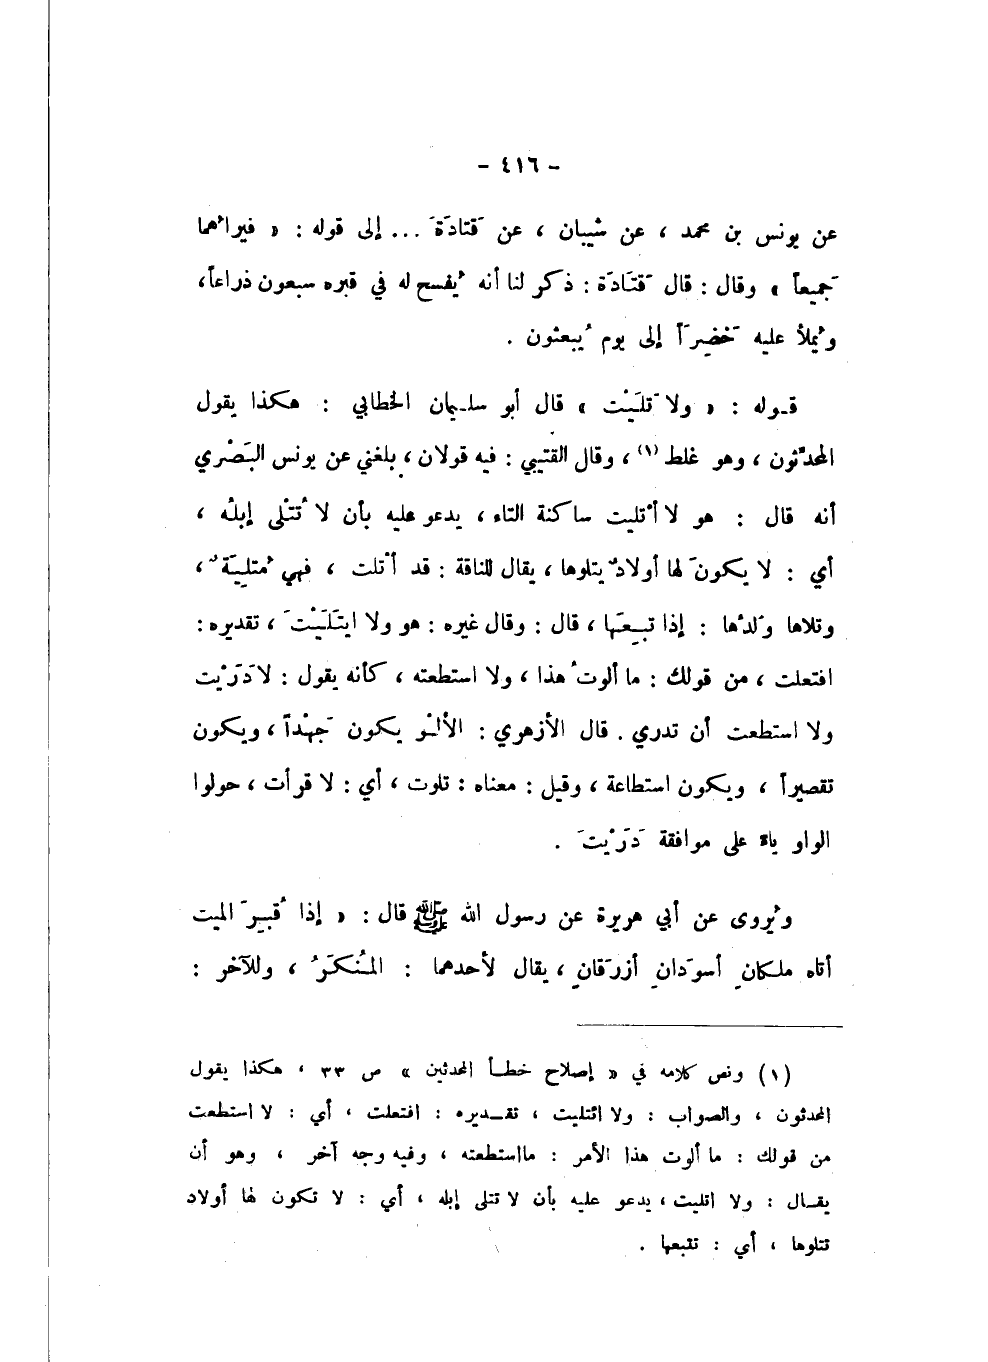 - ٤١٦ -
عن يونس بن محمد ، عن شيبان ، عن قَتادَةَ ... إلى قوله : « فيراهُما
جَميعاً » وقال : قال قَتَادَة : ذكر لنا أنه يُفسح له في قبره سبعون ذراعاً،
ويُملأ عليه خَضِراً إلى يوم يُبعثون .
قـوله : « ولا تَلَيْت » قال أبو سلـيمان الخطابي : هكذا يقول
المحدّثون ، وهو غلط (١) ، وقال القتيبي : فيه قولان ، بلغني عن يونس البَصْري
أنه قال : هو لا أتْليت ساكنة التاء ، يدعو عليه بأن لا تُتْلى إبلُه ،
أي : لا يكونَ لها أولادٌ يتلوها ، يقال للناقة : قد أتْلت ، فهي مُتلِيَةٌ ،
وتلاها وَلدُها : إذا تبِعَها ، قال : وقال غيره : هو ولا ايتَلَيْتَ ، تقديره :
افتعلت ، من قولك : ما ألوتُ هذا ، ولا استطعته ، كأنه يقول : لا دَرَيْت
ولا استطعت أن تدري . قال الأزهري : الألْو يكون جَهْداً ، ويكون
تقصيراً ، ويكون استطاعة ، وقيل : معناه : تلوت ، أي : لا قرأت ، حولوا
الواو ياءً على موافقة دَرَيْتَ .
ويُروى عن أبي هريرة عن رسول الله ﷺ قال : « إذا قُبِرَ الميت
أتاه ملكانِ أسوَدانِ أزرَقانِ ، يقال لأحدهما : المُنكَرُ ، وللآخر :
(١) ونص كلامه في « إصلاح خطـأ المحدثين » ص ٣٣ ، هكذا يقول
المحدثون ، والصواب : ولا ائتليت ، تقـديره : افتعلت ، أي : لا استطعت
من قولك : ما ألوت هذا الأمر : مااستطعته ، وفيه وجه آخر ، وهو أن
يقـال : ولا اتليت ، يدعو عليه بأن لا تتلى إبله ، أي : لا تكون لها أولاد
تتلوها ، أي : تتبعها .